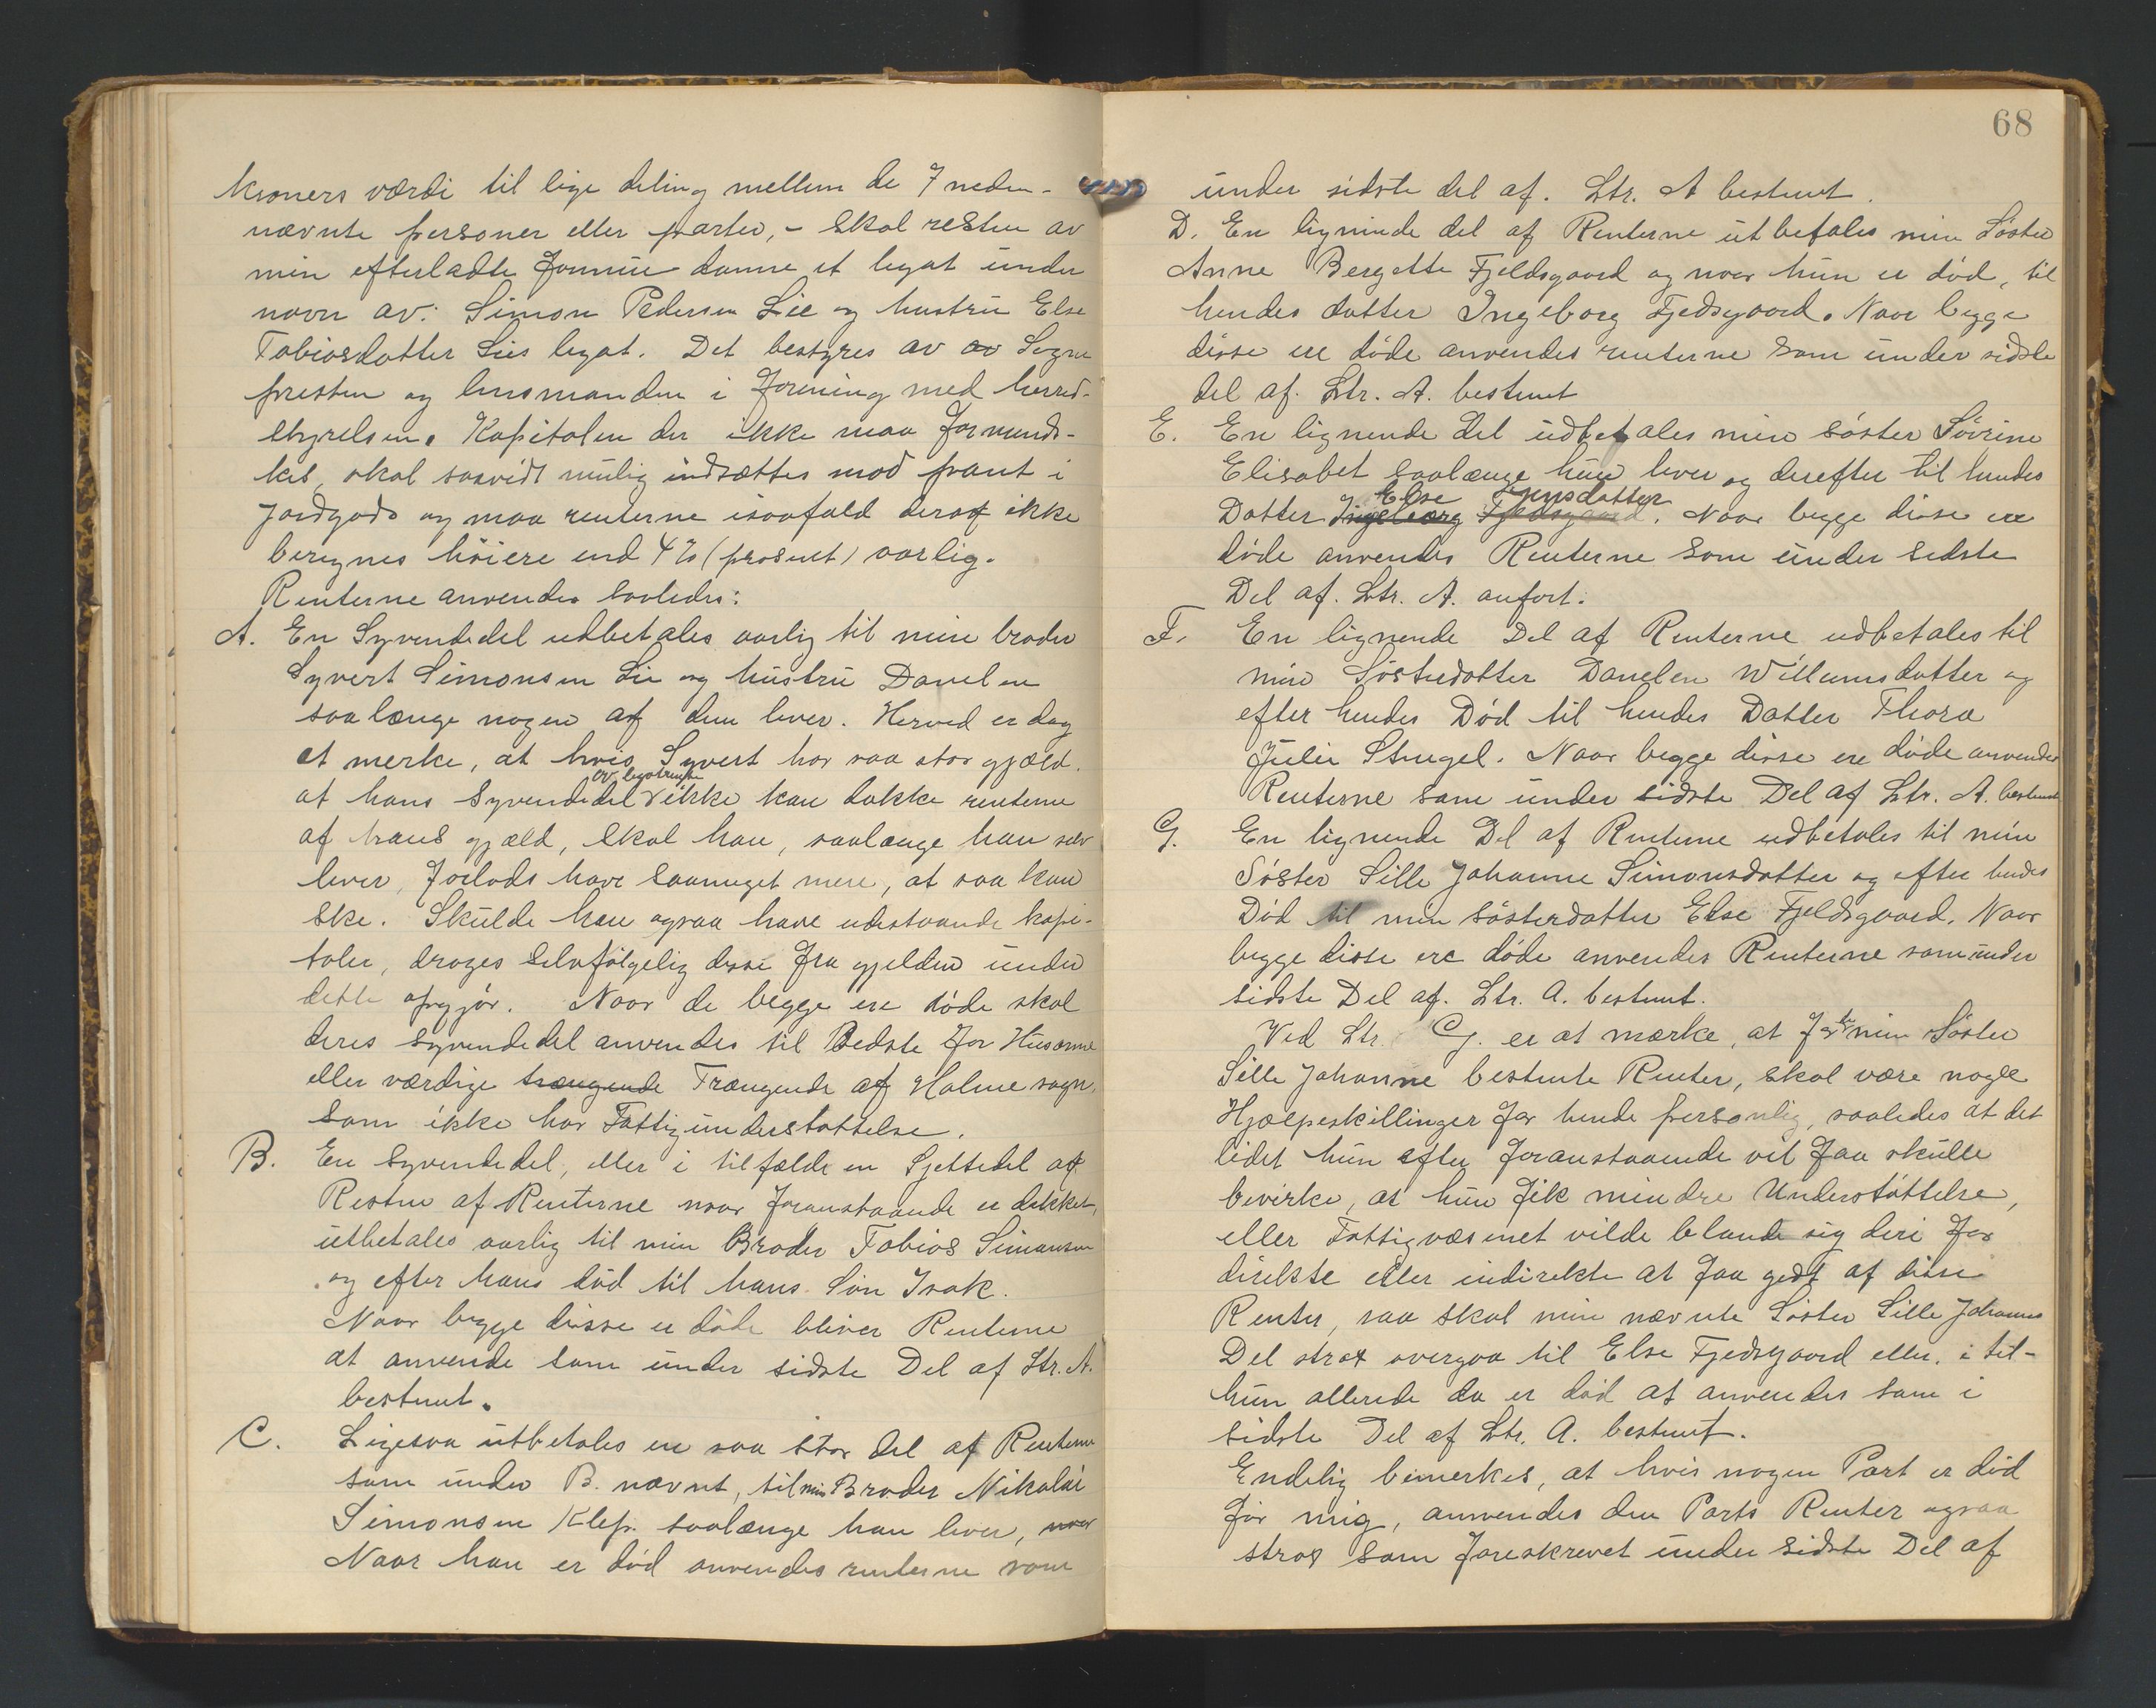 kroners værdi til lige deling mellem de 7 neden-
nævnte personer eller parter, - skal resten av
min efterladte formue danne et legat under
navn av: Simon Pedersen Lie og hustru Else
Tobiasdatter Lies legat. Det bestyres av av Sogne
presten og lensmanden i forening med herred-
styrelsen. Kapitalen der ikke maa forminds-
kes, skal saavidt mulig indsættes mod pant i
Jordgods og maa renterne isaafald deraf ikke
beregnes höiere end 4 % (prosent) aarlig.
Renterne anvendes saaledes:
A. En Syvendedel udbetales aarlig til min broder
Syvert Simonsen Lie og hustru Danelen
saa længe nogen af dem lever. Herved er dog
at merke, at hvis Syvert har saa stor gjæld.
av legatrenten
at hans Syvendedel V ikke kan dække renterne
af hans gjæld, skal han, saalænge han selv
lever, forlods have saameget mere, at saa kan
ske. Skulde han ogsaa have udestaaende kapi-
taler, drages selvfølgelig disse fra gjelden under
dette opgjör. Naar de begge ere döde skal
deres Syvendedel anvendes til Bedste for Husarme
eller værdige trængende Trængende af Holme sogn,
som ikke har Fattigunderstøttelse.
B. En Syvendedel, eller i tilfælde en Sjettedel af
Resten af Renterne naar foranstaaende er dekket,
utbetales aarlig til min Broder Tobias Simonsen
og efter hans död til hans Sön Isak.
Naar begge disse er döde bliver Renterne
at anvende som under sidste Del af Ltr. A.
bestemt.
C. Ligesaa utbetales en saa stor Del af Renterne
som under B. nævnt, til min Broder Nikolai
Simonsen Klep. saalænge han lever, naar
Naar han er död anvendes renterne som
68
under sidste del af. Ltr. A bestemt.
D. En lignende del af Renterne utbetales min Söster
Anne Bergette Fjeldsgaard og naar hun er död, til
hendes datter Ingeborg Fjedsgaard. Naar begge
disse ere döde anvendes renterne som under sidste
del af. Ltr. A. bestemt
E. En lignende del udbetales min söster Sörine
Elisabet saalænge hun lever og derefter til hendes
Else Jensdatter
Datter Ingeborg Fjedsgaard. Naar begge disse ere
döde anvendes Renterne som under sidste
Del af. Ltr. A. anfort.
F. En lignende Del af Renterne udbetales til
min Søsterdatter Danelen Willumsdatter og
efter hendes Død til hendes Datter Thora
Julie Stengel. Naar begge disse ere døde anvendes
Renterne som under sidste Del af Ltr. A. bestemt
G. En lignende Del af Renterne udbetales til min
Söster Sille Johanne Simonsdatter og efter hendes
Død til min Søsterdatter Else Fjeldsgaard. Naar
begge disse ere døde anvendes Renterne som under
sidste Del af. Ltr. A. bestemt.
Ved Ltr. G. er at mærke, at de for min Söster
Sille Johanne bestemte Renter, skal være nogle
Hjælpeskillinger for hende personlig, saaledes at det
lidet hun efter foranstaaende vil faa skulle
bevirke, at hun fik mindre Understöttelse,
eller Fattigvæsenet vilde blande sig deri for
direkte eller indirekte at faa godt af disse
Renter, saa skal min nævnte Söster Sille Johannes
Del strax overgaa til Else Fjedsgaard eller, i til-
hun allerede da er död at anvendes som i
sidste Del af Ltr. A. bestemt.
Endelig bemerkes, at hvis nogen Part er död
för mig, anvendes den Parts Renter ogsaa
strax som foreskrevet under sidste Del af